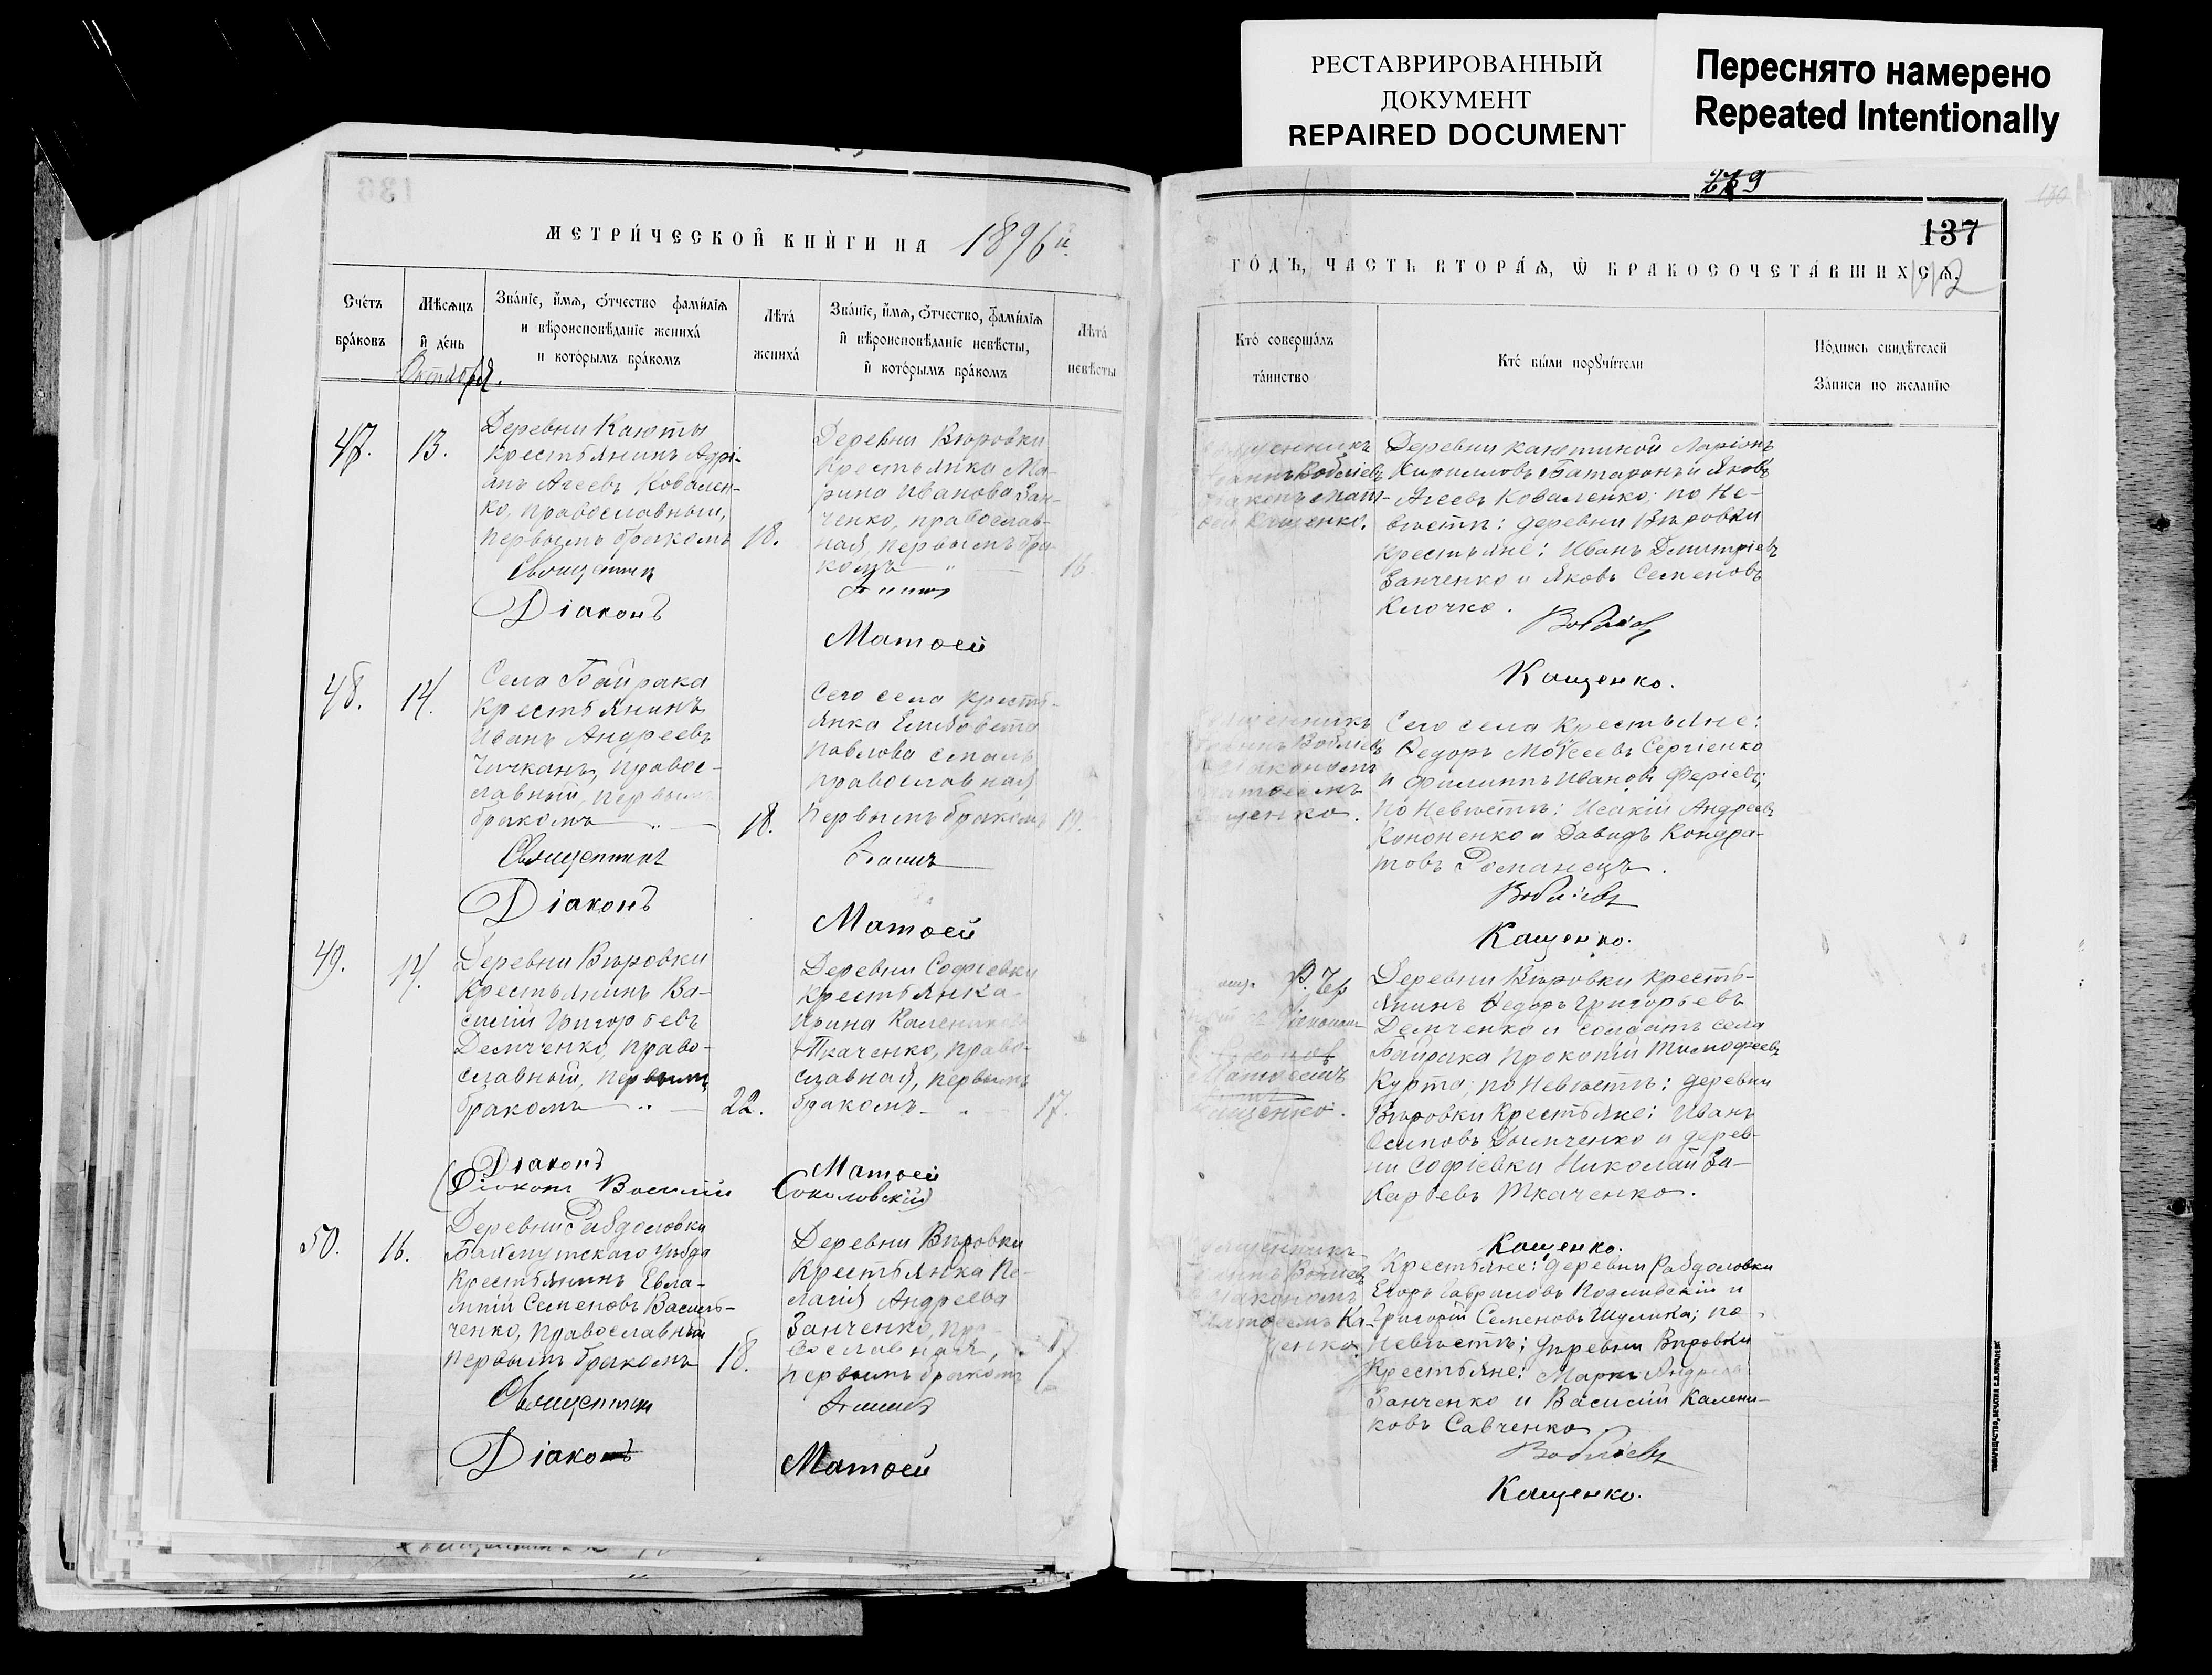 РЕСТАВРИРОВАННЫЙ
ДОКУМЕНТ
REPAIRED DOCUMENT
Переснято намерено
Repeated Intentionally
МЕТРИ́ЧЕСКОЙ КНИ́ГИ НА 1896й.
Сче́тъ
бра́ковъ
Мѣсяцъ
и҆ де́нь
Октября.
Зва́нїе, и҆́мѧ, ѻ҆́тчество фами́лїѧ
и вѣроисповѣ́данїе жениха́
и кото́рымъ бра́комъ
Лѣта́
жениха́
Зва́нїе, и҆́мѧ, ѻ҆́тчество, фами́лїѧ
и҆ вѣроисповѣ́данїе невѣ́сты,
и҆ кото́рымъ бра́комъ
Лѣта́
невѣ́сты
47.
13.
Деревни Каюты
крестьянинъ Адрі-
анъ Агеевъ Ковален-
ко, православный,
первымъ бракомъ
18.
Деревни Вѣровки
крестьянка Ма-
рина Иванова Зан-
ченко, православ-
ная, первымъ бра-
комъ
16.
Священникъ
Іоаннъ
Діаконъ
Матѳей
48.
14.
Села Байрака
крестьянинъ
Иванъ Андреевъ
Чичканъ, правос-
лавный, первымъ
бракомъ
18.
Сего села кресть-
янка Елисавета
Павлова
православная
первымъ бракомъ
19.
Священникъ
Іоаннъ
Діаконъ
Матѳей
49.
14.
Деревни Вѣровки
крестьянинъ Ва-
силій Григорьевъ
Демченко, право-
славный, первымъ
бракомъ
22.
Деревни Софіевки
крестьянка
Ирина Каленикова
Ткаченко, право-
славная, первымъ
бракомъ
17.
Діаконъ
Матѳей
(Діаконъ Василій
Соколовскій)
50.
16.
Деревни Райдоловки
Бахмутскаго уѣзда
крестьянинъ Евла-
мпій Семеновъ Василь-
ченко, православный
первымъ бракомъ
18.
Деревни Вѣровки
крестьянка Пе-
лагія Андреева
Занченко, пра-
вославная,
первымъ бракомъ
17
Священникъ
Іоаннъ
Діаконъ
Матѳей
279
137
112
ГО́ДЪ, ЧАСТЬ ВТОРА́Ѧ, Ѡ҆ БРАКОСОЧЕТА́ВШИХСѦ.
Кто̀ соверша́лъ
та́инство
Кто̀ бы́ли порꙋчи́тели
По́дпись свидѣ́телей
За́писи по жела́нїю
Священникъ
Іоаннъ Воблiевъ
Діаконъ Мат-
ѳей Кащенко.
Деревни Каютиной Ларіонъ
Кирилловъ Батаронъ и Яковъ
Агеевъ Коваленко; по не-
вѣстѣ: деревни Вѣровки
крестьяне: Иванъ Димитріевъ
Занченко и Яковъ Семеновъ
Клочко.
Воблiевъ
Кащенко.
Священникъ
Іоаннъ Воблiевъ
съ Діакономъ
Матѳеемъ
Кащенко.
Сего села крестьяне:
Ѳедоръ Моѵсеевъ Сергіенко
и Филиппъ Ивановъ
по невѣстѣ: Исакій Андреевъ
Кононенко и Давидъ Кондра-
товъ Романецъ.
Воблiевъ
Кащенко.
Матѳеемъ
Кащенко.
Деревни Вѣровки кресть-
янинъ Ѳедоръ Григорьевъ
Демченко и солдатъ села
Байрака Прокопій Тимофеевъ
Курта; по невѣстѣ: деревни
Вѣровки крестьяне: Иванъ
Осиповъ Дымченко и дерев-
ни Софіевки Николай За-
харьевъ Ткаченко.
Кащенко.
Священникъ
Іоаннъ Воблiевъ
съ Діакономъ
Матѳеемъ Ка-
щенко.
Крестьяне: деревни Райдоловки
Егоръ Гавриловъ Подлибскій и
Григорій Семеновъ Шулика; по
невѣстѣ: деревни Вѣровки
крестьяне: Маркъ Андреевъ
Занченко и Василій Калени-
ковъ Савченко
Воблiевъ
Кащенко.